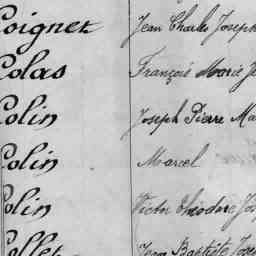 Coignet Jean Charles Joseph
Colas François Marie
Colin Joseph Pierre
Colin Marcel
Colin Victor Théodore
Collet Jean Baptiste